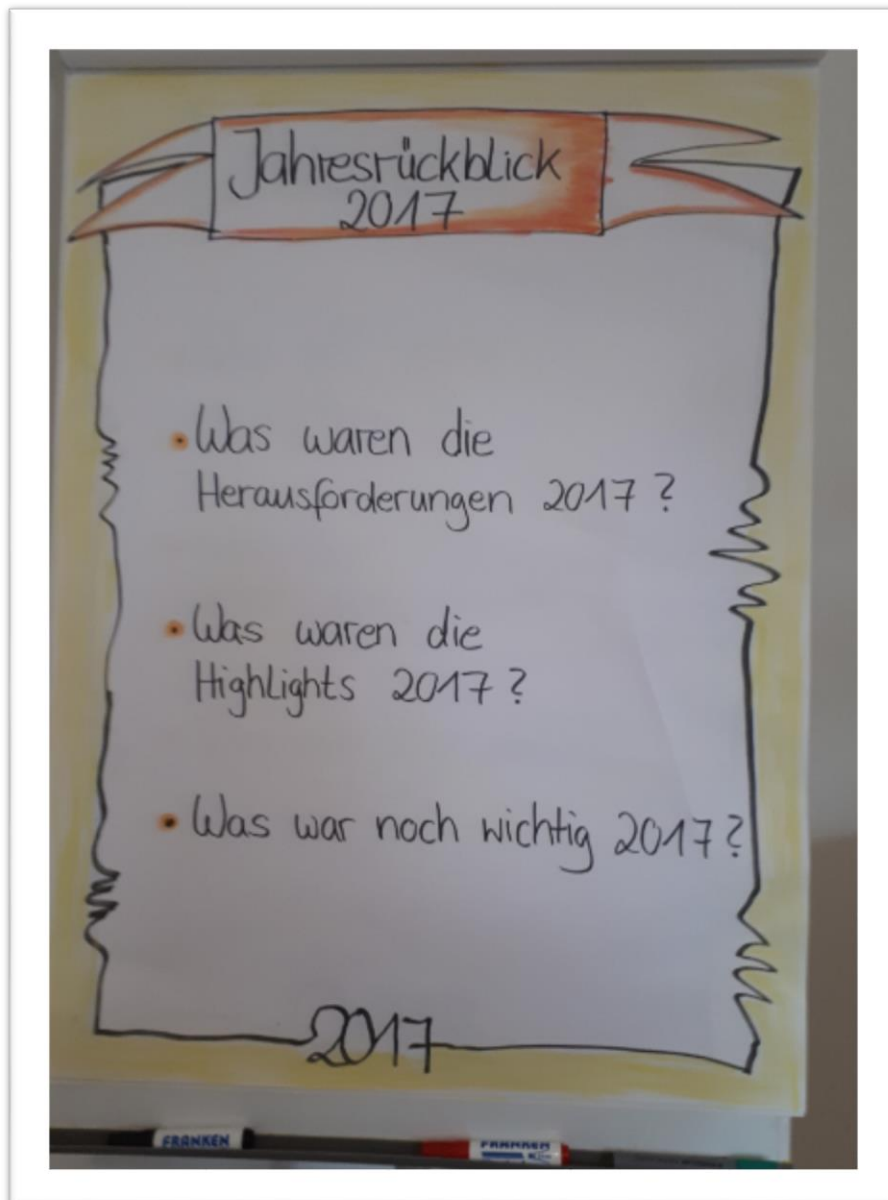 Jahresrückblick
2017
• Was waren die
Herausforderungen 2017?
• Was waren die
Highlights 2017?
• Was war noch wichtig 2017?
2017
FRANKEN
FRANKEN